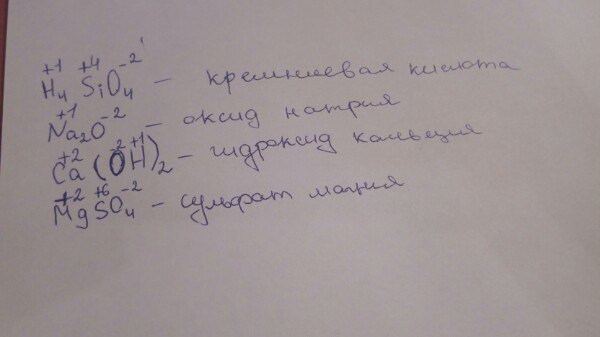 +1 +4 -2
H₄SiO₄ – кремниевая кислота
+1 -2
Na₂O – оксид натрия
+2 -2 +1
Ca(OH)₂ – гидроксид кальция
+2 +6 -2
MgSO₄ – сульфат магния